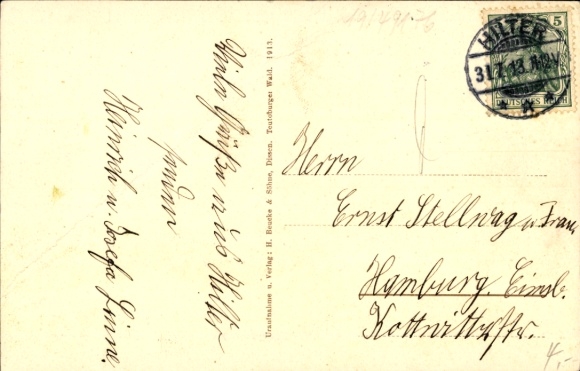 Viele Grüße aus Hilter
senden
Heinrich u. Josefa Linne.
Uraufnahme u. Verlag: H. Beucke & Söhne, Dissen. Teutoburger Wald. 1913.
HILTER
31.7.13. 8-9V.
DEUTSCHES REICH
5
Herrn
Ernst Stellwag u Frau
Hamburg. Eimsb.
Kottwitzstr.
4,-